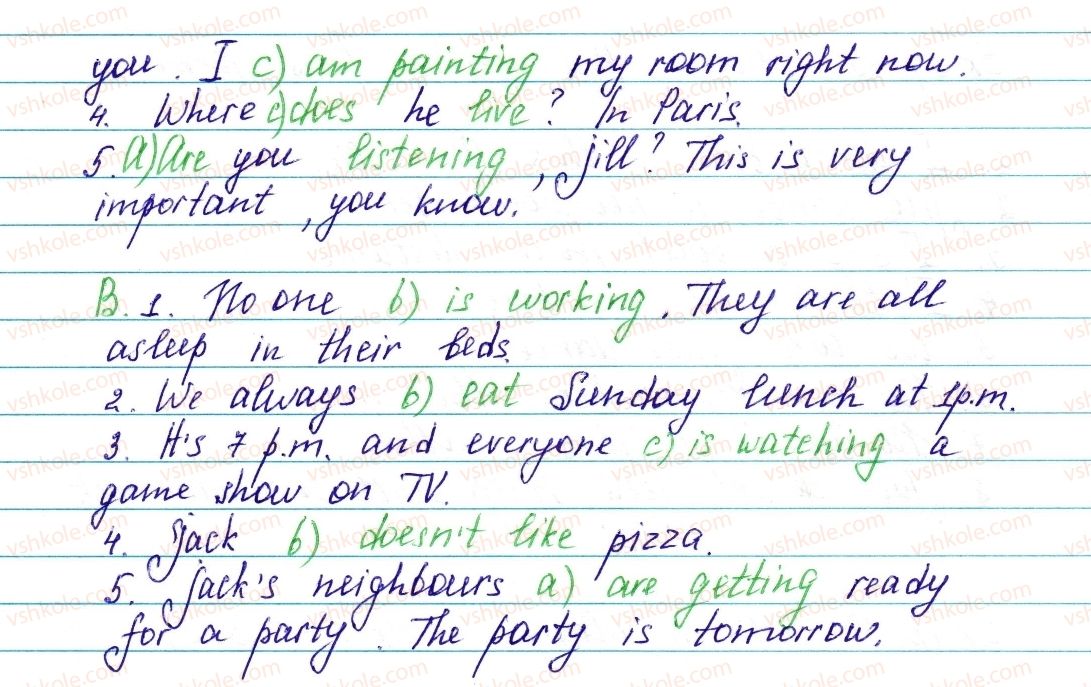 you. I c) am painting my room right now.
4. Where c) does he live? In Paris.
5. a) Are you listening, Jill? This is very
important, you know.
B. 1. No one b) is working. They are all
asleep in their beds.
2. We always b) eat Sunday lunch at 1p.m.
3. It's 7 p.m. and everyone c) is watching a
game show on TV.
4. Jack b) doesn't like pizza.
5. Jack's neighbours a) are getting ready
for a party. The party is tomorrow.